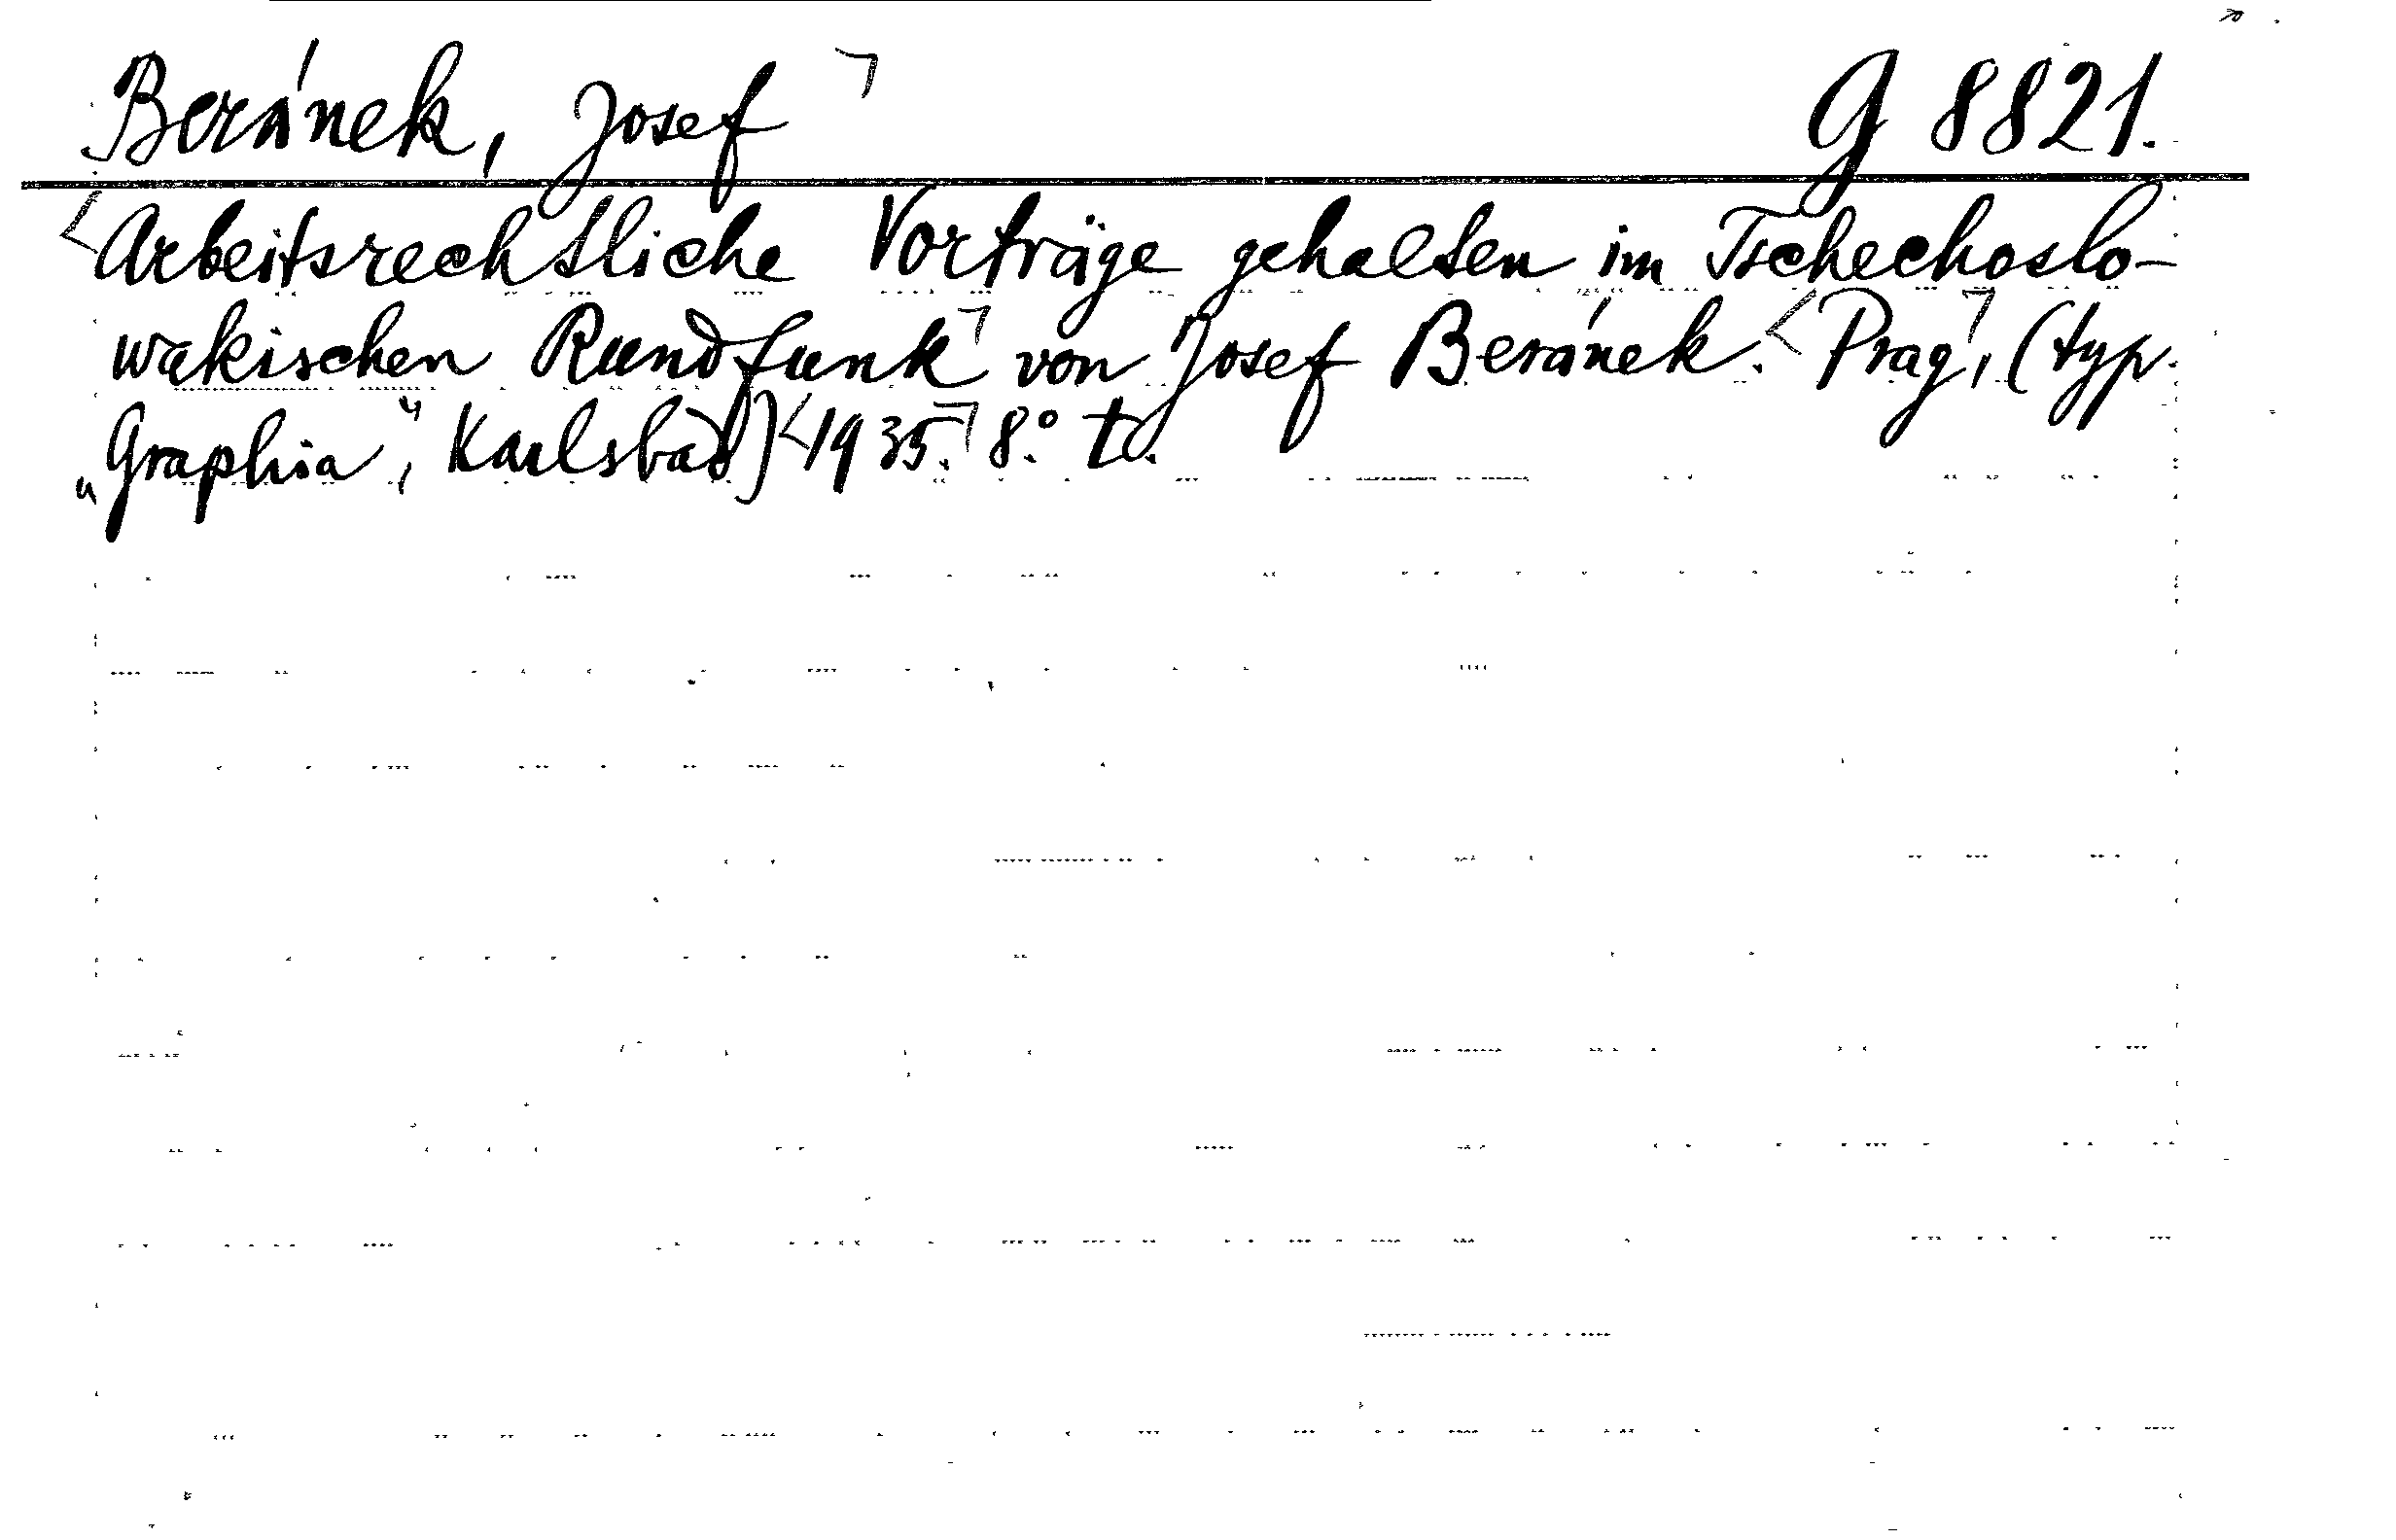 Beránek, Josef G 8821.
Arbeitsrechtliche Vorträge gehalten im Tschechoslo-
wakischen Rundfunk von Josef Beránek. Prag, (typ.
„Graphia“, Karlsbad) 1935. 8.°